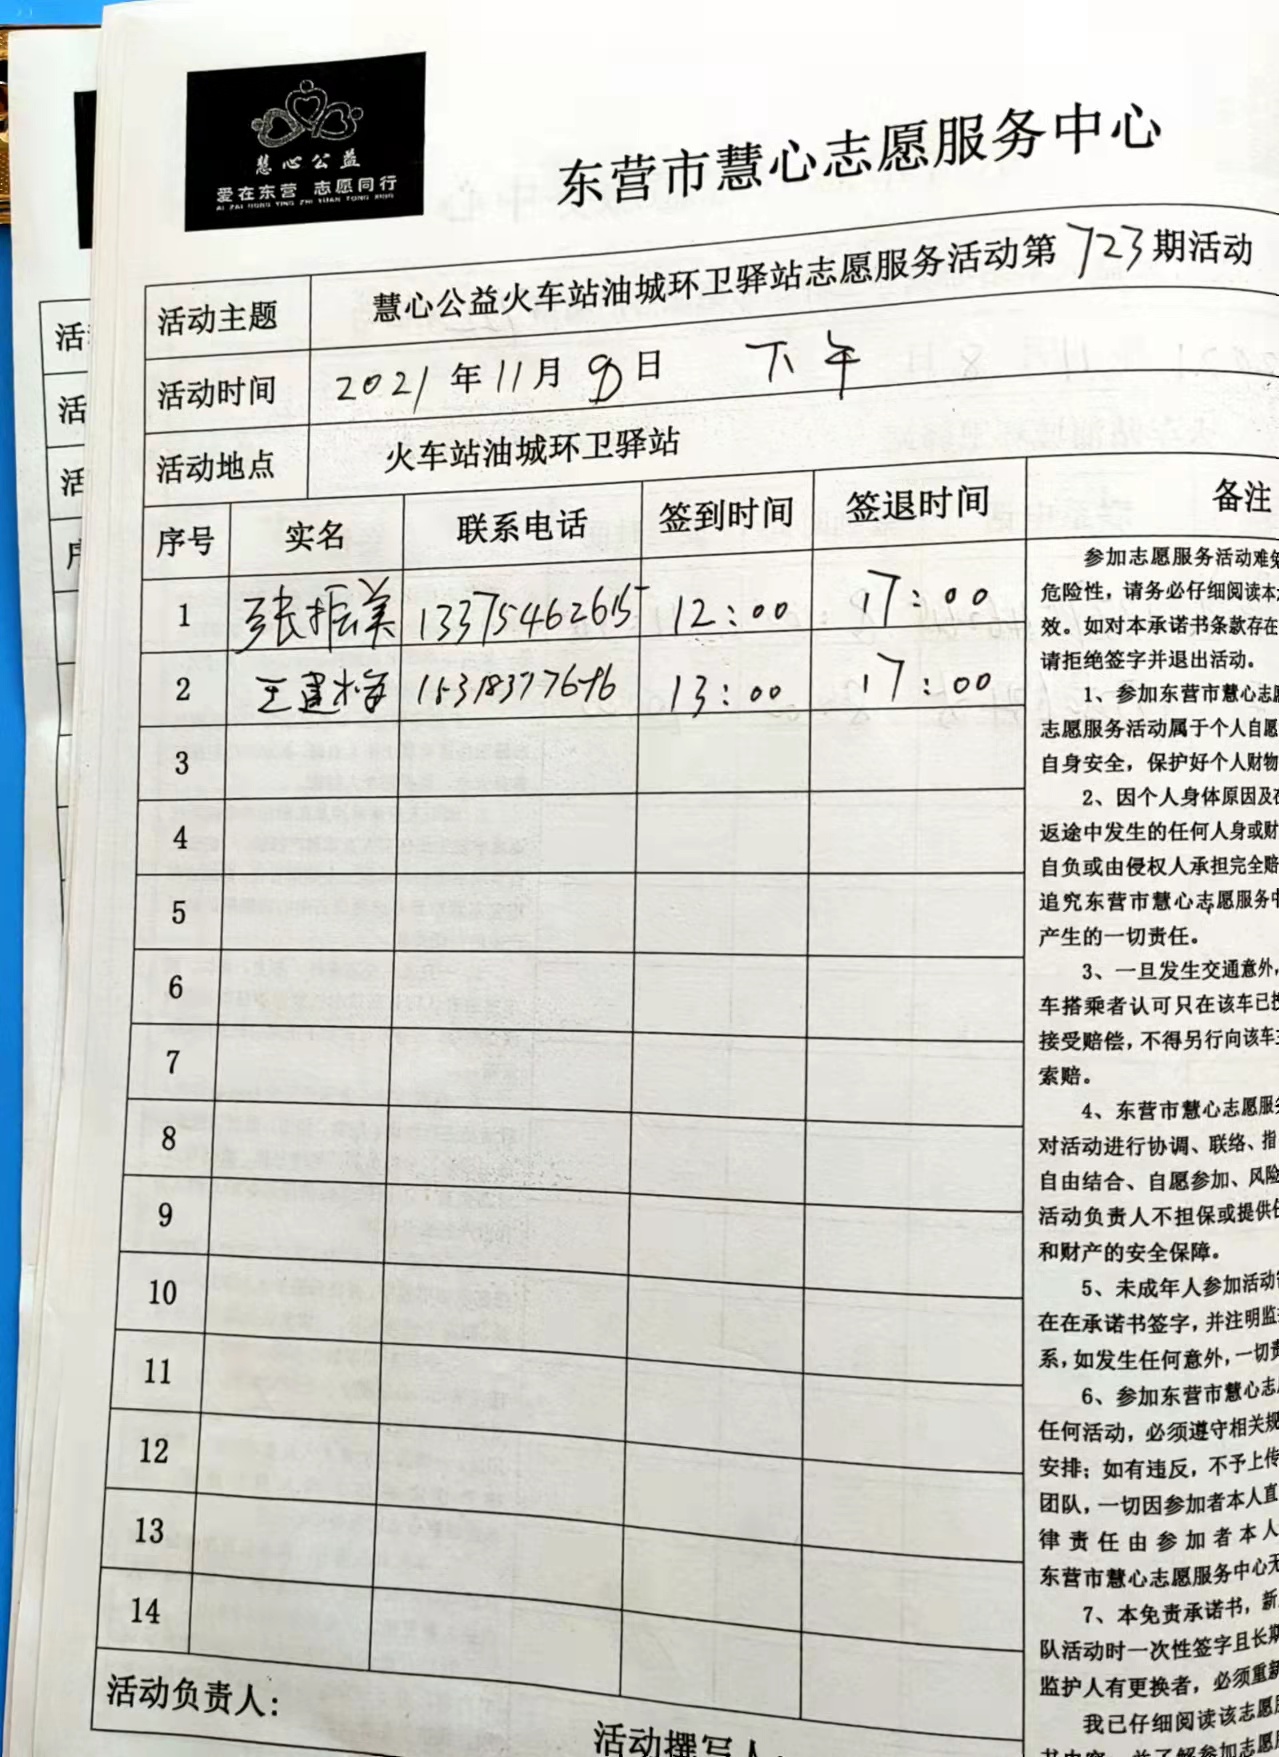 慧心公益
爱在东营 志愿同行
AI ZAI DONG YING ZHI YUAN TONG XING
东营市慧心志愿服务中心
活动主题 慧心公益火车站油城环卫驿站志愿服务活动第723期活动
活动时间 2021年11月8日 下午
活动地点 火车站油城环卫驿站
序号 实名 联系电话 签到时间 签退时间 备注
1 张振美 13375462615 12:00 17:00
2 王建梅 15318377696 13:00 17:00
3
4
5
6
7
8
9
10
11
12
13
14
活动负责人:
活动撰写人:
参加志愿服务活动难免
危险性，请务必仔细阅读本
效。如对本承诺书条款存在
请拒绝签字并退出活动。
1、参加东营市慧心志愿
志愿服务活动属于个人自愿
自身安全，保护好个人财物
2、因个人身体原因及在
返途中发生的任何人身或财
自负或由侵权人承担完全赔
追究东营市慧心志愿服务中
产生的一切责任。
3、一旦发生交通意外，
车搭乘者认可只在该车已投
接受赔偿，不得另行向该车主
索赔。
4、东营市慧心志愿服务
对活动进行协调、联络、指
自由结合、自愿参加、风险
活动负责人不担保或提供任
和财产的安全保障。
5、未成年人参加活动
在在承诺书签字，并注明监
系，如发生任何意外，一切责
6、参加东营市慧心志愿
任何活动，必须遵守相关规
安排；如有违反，不予上传
团队，一切因参加者本人直
律责任由参加者本人
东营市慧心志愿服务中心无
7、本免责承诺书，新
队活动时一次性签字且长期
监护人有更换者，必须重新
我已仔细阅读该志愿服
活
活
活
序